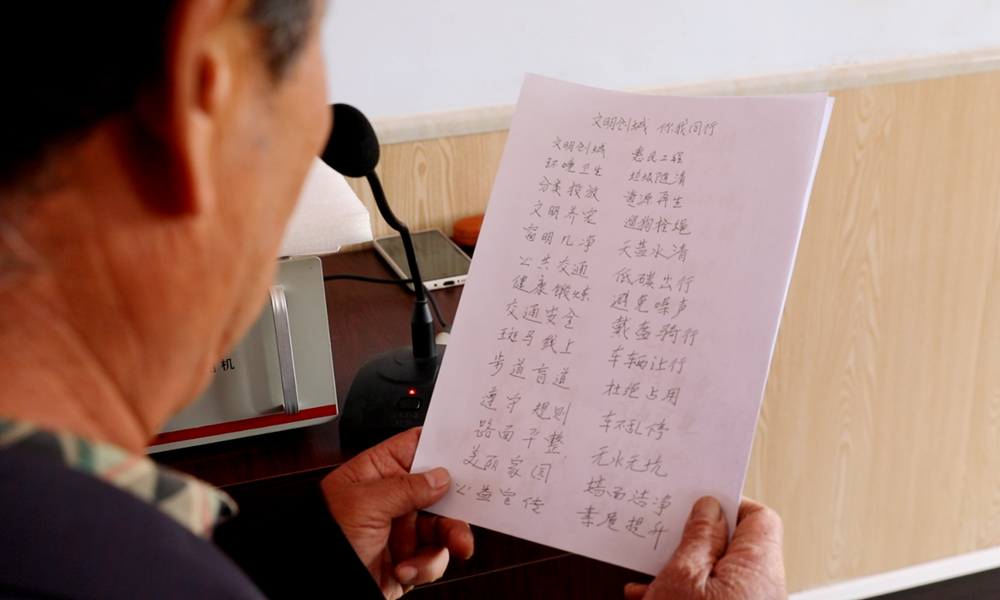 文明创城 你我同行
文明创城 惠民工程
环境卫生 垃圾随清
分类投放 资源再生
文明养宠 遛狗拴绳
窗明几净 天蓝水清
公共交通 低碳出行
健康锻炼 避免噪声
交通安全 戴盔骑行
斑马线上 车辆让行
步道盲道 杜绝占用
遵守规则 车不乱停
路面平整 无水无坑
美丽家园 墙面洁净
公益宣传 素质提升
机